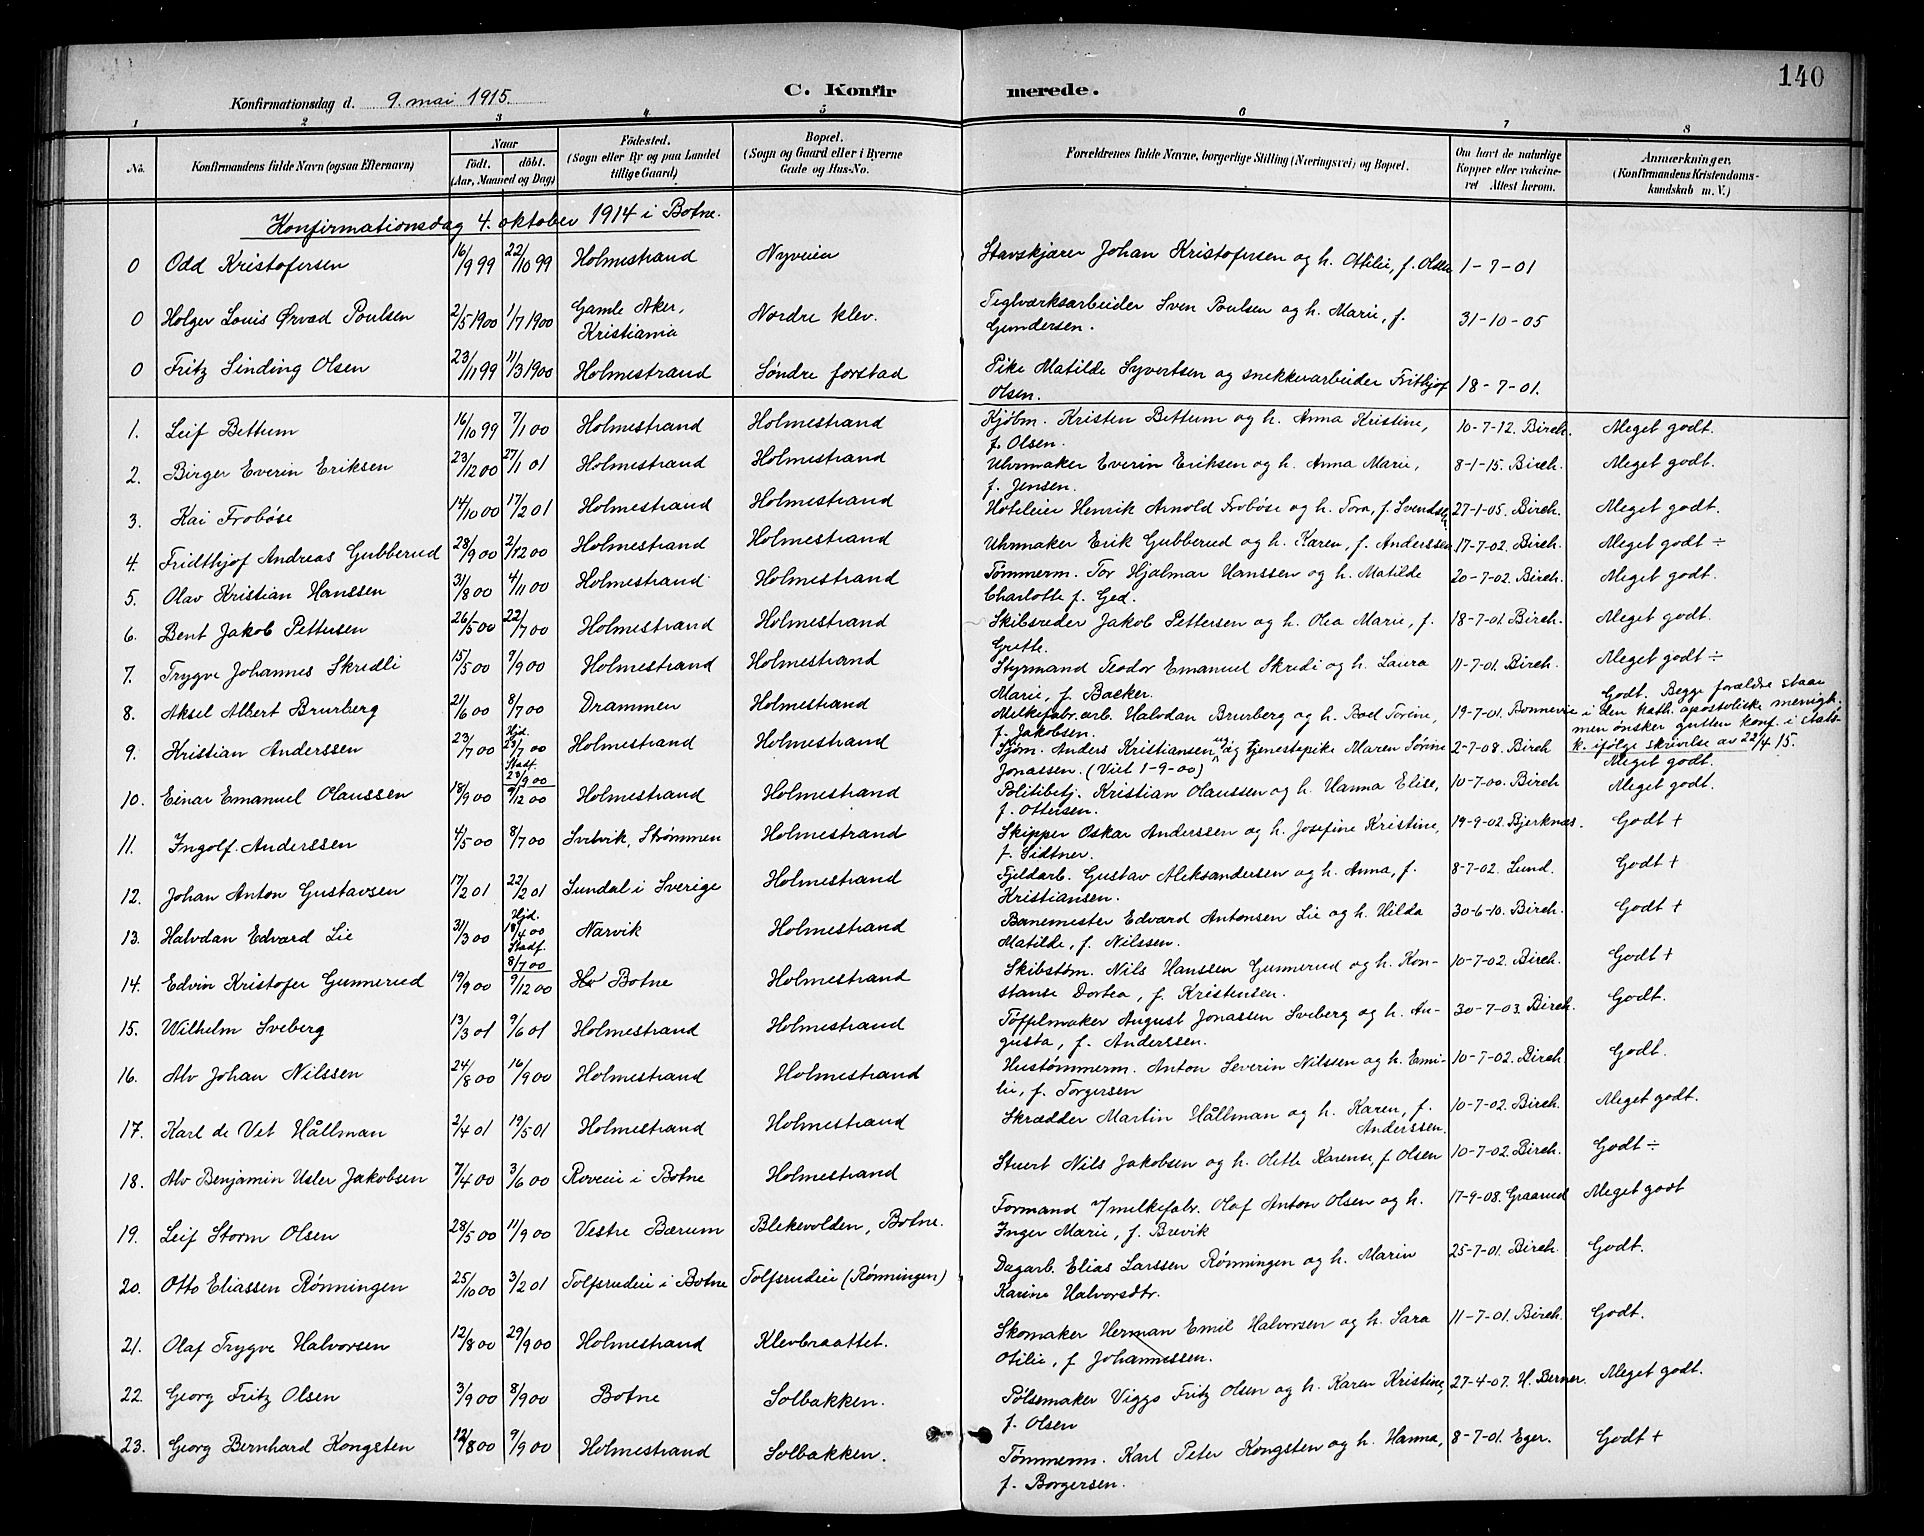 140
Konfirmationsdag d. 9. mai 1915. C. Konfirmerede.
1 2 3 4 5 6 7 8
No. Konfirmandens fulde Navn (ogsaa Efternavn) Naar födt. döbt. (Aar, Maaned og Dag) Födested. (Sogn eller By og paa Landet tillige Gaard) Bopæl. (Sogn og Gaard eller i Byerne Gade og Hus-No. Forældrenes fulde Navne, borgerlige Stilling (Næringsvei) og Bopæl. Om havt de naturlige Kopper eller vakcineret Attest herom. Anmærkninger. (Konfirmandens Kristendomskundskab m. V.)
Konfirmationsdag 4. oktober 1914 i Botne.
0 Odd Kristofersen 16/9 99 22/10 99 Holmestrand Nyveien Stavskjærer Johan Kristofersen og h. Ottilie, f. Olsen 1-7-01
0 Holger Louis Ørvad Poulsen 2/5 1900 1/7 1900 Gamle Aker, Kristiania Nordre klev. Teglværksarbeider Sven Poulsen og h. Marie, f. Gundersen. 31-10-05
0 Fritz Sinding Olsen 23/11 99 11/3 1900 Holmestrand Søndre forstad Pike Matilde Syvertsen og snekkerarbeider Frithjof Olsen. 18-7-01.
1. Leif Bettum 16/10 99 7/1 00 Holmestrand Holmestrand Kjøbm. Kristen Bettum og h. Anna Kristine, f. Olsen. 10-7-12. Birch. Meget godt.
2. Birger Everin Eriksen 23/12 00 27/1 01 Holmestrand Holmestrand Uhrmaker Everin Eriksen og h. Anna Marie, f. Jensen. 8-1-15. Birch. Meget godt.
3. Kai Frobøse 14/10 00 17/2 01 Holmestrand Holmestrand Hoteleier Henrik Arnold Frobøse og h. Tora, f. Svendsen 27-1-05. Birch. Meget godt.
4. Fridthjof Andreas Gubberud 28/9 00 2/12 00 Holmestrand Holmestrand Uhrmaker Erik Gubberud og h. Karen, f. Anderssen 17-7-02. Birch. Meget godt ÷
5. Olav Kristian Hanssen 31/8 00 4/11 00 Holmestrand Holmestrand Tømmerm. Tor Hjalmar Hanssen og h. Matilde Charlotte f. Ged. 20-7-02. Birch. Meget godt.
6. Bent Jakob Pettersen 26/5 00 22/7 00 Holmestrand Holmestrand Skibsreder Jakob Pettersen og h. Olea Marie, f. Grette. 18-7-01. Birch. Meget godt.
7. Trygve Johannes Skredli 15/5 00 9/9 00 Holmestrand Holmestrand Styrmand Teodor Emanuel Skredi og h. Laura Marie, f. Backer. 11-7-01. Birch. Meget godt ÷
8. Aksel Albert Brurberg 21/6 00 8/7 00 Drammen Holmestrand Melkefabr.arb. Halvdan Brurberg og h. Boel Torine, f. Jakobsen. 19-7-01. Bonnevie Godt. Begge forældre staar i den kath. apostoliske menigh. men ønsker gutten konf. i statsk. ifølge skrivelse av 22/4 15.
9. Kristian Anderssen 23/7 00 Hjd. 23/7 00 Stadf. 23/9 00 Holmestrand Holmestrand Sjøm. Anders Kristiansen ug og tjenestepike Maren Sørine Jonassen. (Viet 1-9-00) 2-7-08. Birch Meget godt.
10. Einar Emanuel Olaussen 18/9 00 9/12 00 Holmestrand Holmestrand Politibetj. Kristian Olaussen og h. Hanna Elise, f. Ottersen. 10-7-00. Birch Meget godt.
11. Ingolf Anderssen 4/5 00 8/7 00 Svelvik, Strømmen Holmestrand Skipper Oskar Anderssen og h. Josefine Kristine, f. Sidtner. 19-9-02. Bjerknæs. Godt +
12. Johan Anton Gustavsen 17/2 01 22/2 01 Sundal i Sverige Holmestrand Fjeldarb. Gustav Aleksandersen og h. Anna, f. Kristiansen. 8-7-02. Lund. Godt +
13. Halvdan Edvard Lie 31/3 00 Hjd. 18/4 00 Stadf. 8/7 00 Narvik Holmestrand Banemester Edvard Antonsen Lie og h. Hilda Matilde, f. Nilssen. 30-6-10. Birch. Godt +
14. Edvin Kristofer Gunnerud 19/9 00 9/12 00 Botne Holmestrand Skibstøm. Nils Hanssen Gunnerud og h. Konstanse Dortea, f. Kristensen. 10-7-02. Birch. Godt +
15. Wilhelm Sveberg 13/3 01 9/6 01 Holmestrand Holmestrand Tøffelmaker August Jonassen Sveberg og h. Augusta, f. Anderssen. 30-7-03. Birch. Godt.
16. Alv Johan Nilssen 24/8 00 16/9 00 Holmestrand Holmestrand Hustømmerm. Anton Severin Nilssen og h. Emilie, f. Torgersen 10-7-02. Birch Godt.
17. Karl de Vet Hållman 2/4 01 19/5 01 Holmestrand Holmestrand Skrædder Martin Hållman og h. Karen, f. Anderssen. 10-7-02. Birch. Meget godt.
18. Alv Benjamin Usler Jakobsen 7/4 00 3/6 00 Roveiei i Botne Holmestrand Stuert Nils Jakobsen og h. Olette Karense, f. Olsen 10-7-02. Birch. Godt ÷
19. Leif Storm Olsen 28/5 00 11/9 00 Vestre Bærum Blekevolden, Botne. Formand v/ melkefabr. Olaf Anton Olsen og h. Inger Marie, f. Brevik 17-9-08. Graarud Meget godt
20. Otto Eliassen Rønningen 25/10 00 3/2 01 Tolfsrudeie i Botne Tolfsrudeie (Rønningen) Dagarb. Elias Larssen Rønningen og h. Marin Karine Halvorsdtr. 25-7-01. Birch. Godt.
21. Olaf Trygve Halvorsen 12/8 00 29/9 00 Holmestrand Klevbraattet. Skomaker Herman Emil Halvorsen og h. Sara Otilie, f Johannessen. 11-7-01. Birch. Godt.
22. Georg Fritz Olsen 3/9 00 8/9 00 Botne Solbakken. Pølsemaker Viggo Fritz Olsen og h. Karen Kristine, f. Olsen 27-4-07. H. Berner. Meget godt.
23. Georg Bernhard Kongsten 12/8 00 9/9 00 Holmestrand Solbakken. Tømmerm. Karl Peter Kongsten og h. Hanna, f. Borgersen. 8-7-01. Eger. Godt +